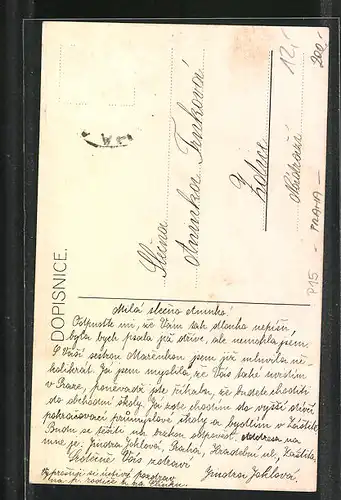 DOPISNICE.
Slečna
Aninka Funková
Zdice
Nádraží
12,-
200,-
P15 - PRAHA -
Milá slečno Aninko!
Odpusťte mi, že Vám tak dlouho nepíši,
byla bych psala již dříve, ale nemohla jsem.
S Vaší sestrou Mařenkou jsem již mluvila ně-
kolikrát. Já jsem myslila, že Vás také uvidím
v Praze, poněvadž jste říkala, že budete choditi
do obchodní školy. Já zde chodím do vyšší dívčí
pokračovací průmyslové školy a bydlím v
Budu se těšiti na brzkou odpověď. Adresa na
mne je: Jindra Johlová, Praha, Hradební ul,
Srdečně Vás zdraví
Jindra Johlová.
uctivý pozdrav
na p. rodiče a